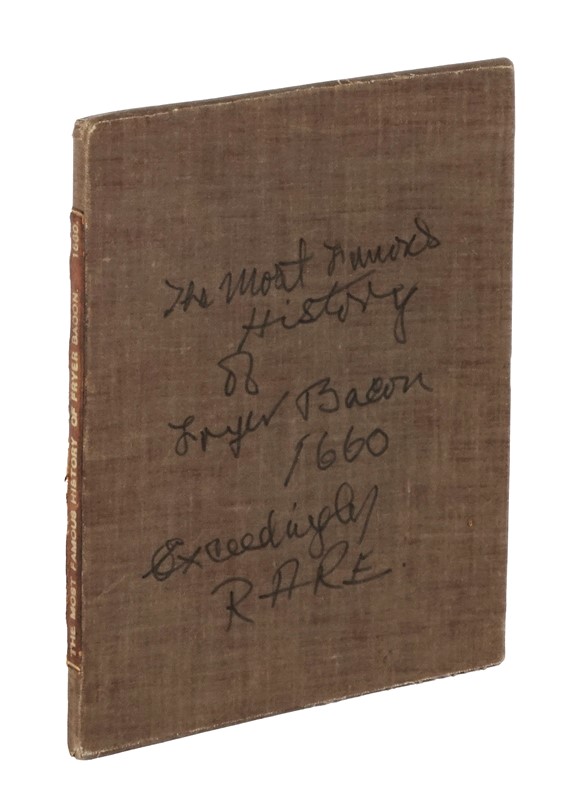 The Most Famous
History
of
Fryer Bacon
1660
Exceedingly
RARE.
THE MOST FAMOUS HISTORY OF FRYER BACON. 1660.